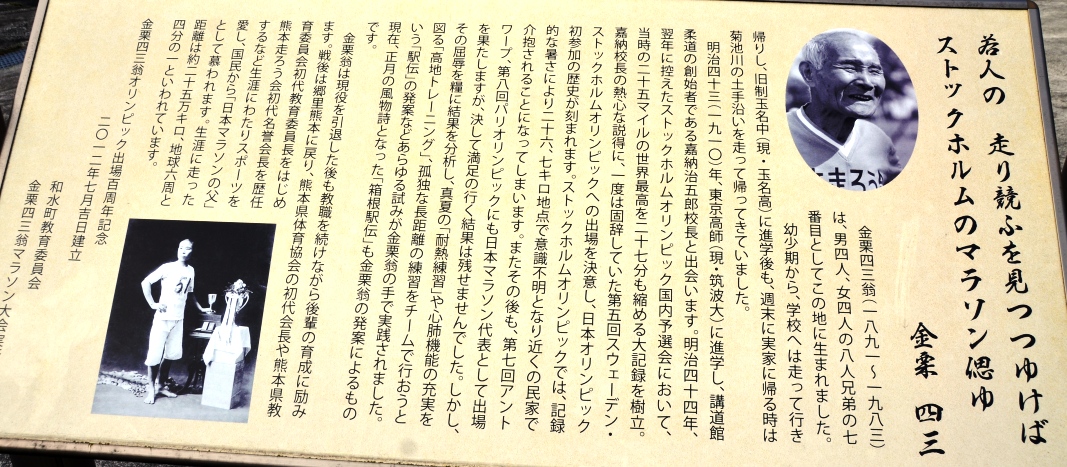 若人の　走り競ふを見つつゆけば
ストックホルムのマラソン偲ゆ
金栗　四三
金栗四三翁(一八九一～一九八三)
は、男四人、女四人の八人兄弟の七
番目としてこの地に生まれました。
幼少期から、学校へは走って行き
帰りし、旧制玉名中(現・玉名高)に進学後も、週末に実家に帰る時は
菊池川の土手沿いを走って帰ってきていました。
明治四十三(一九一〇)年、東京高師(現・筑波大)に進学し、講道館
柔道の創始者である嘉納治五郎校長と出会います。明治四十四年、
翌年に控えたストックホルムオリンピック国内予選会において、
当時の二十五マイルの世界最高を二十七分も縮める大記録を樹立。
嘉納校長の熱心な説得に、一度は固辞していた第五回スウェーデン・
ストックホルムオリンピックへの出場を決意し、日本オリンピック
初参加の歴史が刻まれます。ストックホルムオリンピックでは、記録
的な暑さにより二十六、七キロ地点で意識不明となり近くの民家で
介抱されることになってしまいます。またその後も、第七回アント
ワープ、第八回パリオリンピックにも日本マラソン代表として出場
を果たしますが、決して満足の行く結果は残せませんでした。しかし、
その屈辱を糧に結果を分析し、真夏の「耐熱練習」や心肺機能の充実を
図る「高地トレーニング」、孤独な長距離の練習をチームで行おうと
いう「駅伝」の発案などあらゆる試みが金栗翁の手で実践されました。
現在、正月の風物詩となった「箱根駅伝」も金栗翁の発案によるもの
です。
金栗翁は現役を引退した後も教職を続けながら後輩の育成に励み
ます。戦後は郷里熊本に戻り、熊本県体育協会の初代会長や熊本県教
育委員会初代教育委員長をはじめ
熊本走ろう会初代名誉会長を歴任
するなど生涯にわたりスポーツを
愛し、国民から「日本マラソンの父」
として慕われます。生涯に走った
距離は約二十五万キロ、地球六周と
四分の一といわれています。
金栗四三翁オリンピック出場百周年記念
二〇一二年七月吉日建立
和水町教育委員会
金栗四三翁マラソン大会実